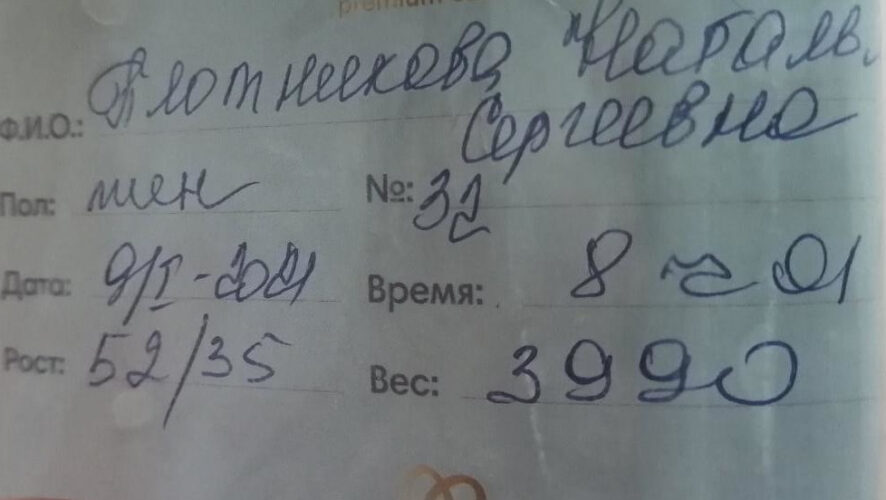 Ф.И.О.: Плотникова Наталь.
Сергеевна
Пол: жен №: 32
Дата: 9/I-2021 Время: 8 ч 01
Рост: 52/35 Вес: 3990